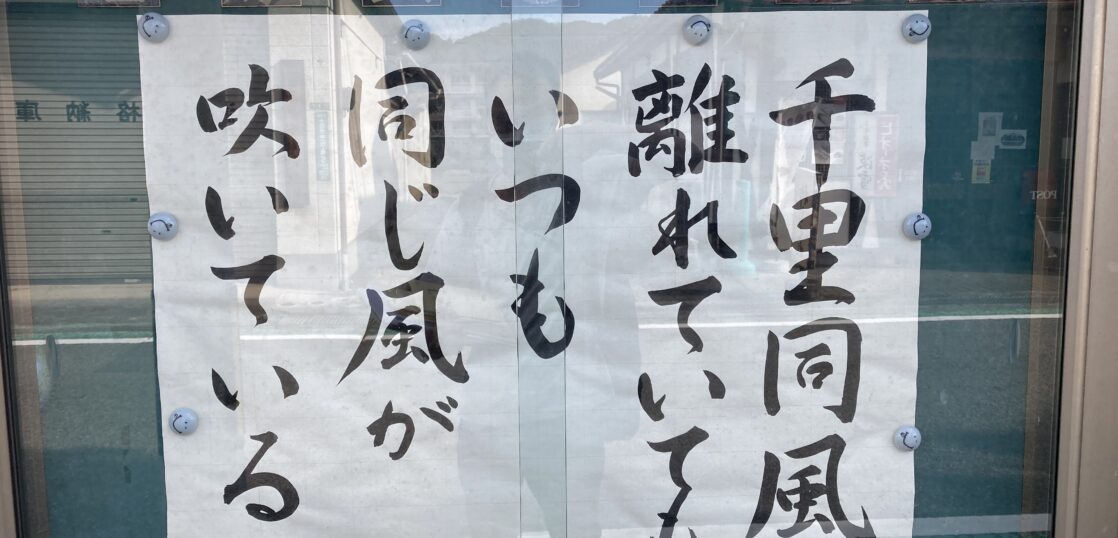 千里同風
離れていても
いつも
同じ風が
吹いている
格納庫
POST